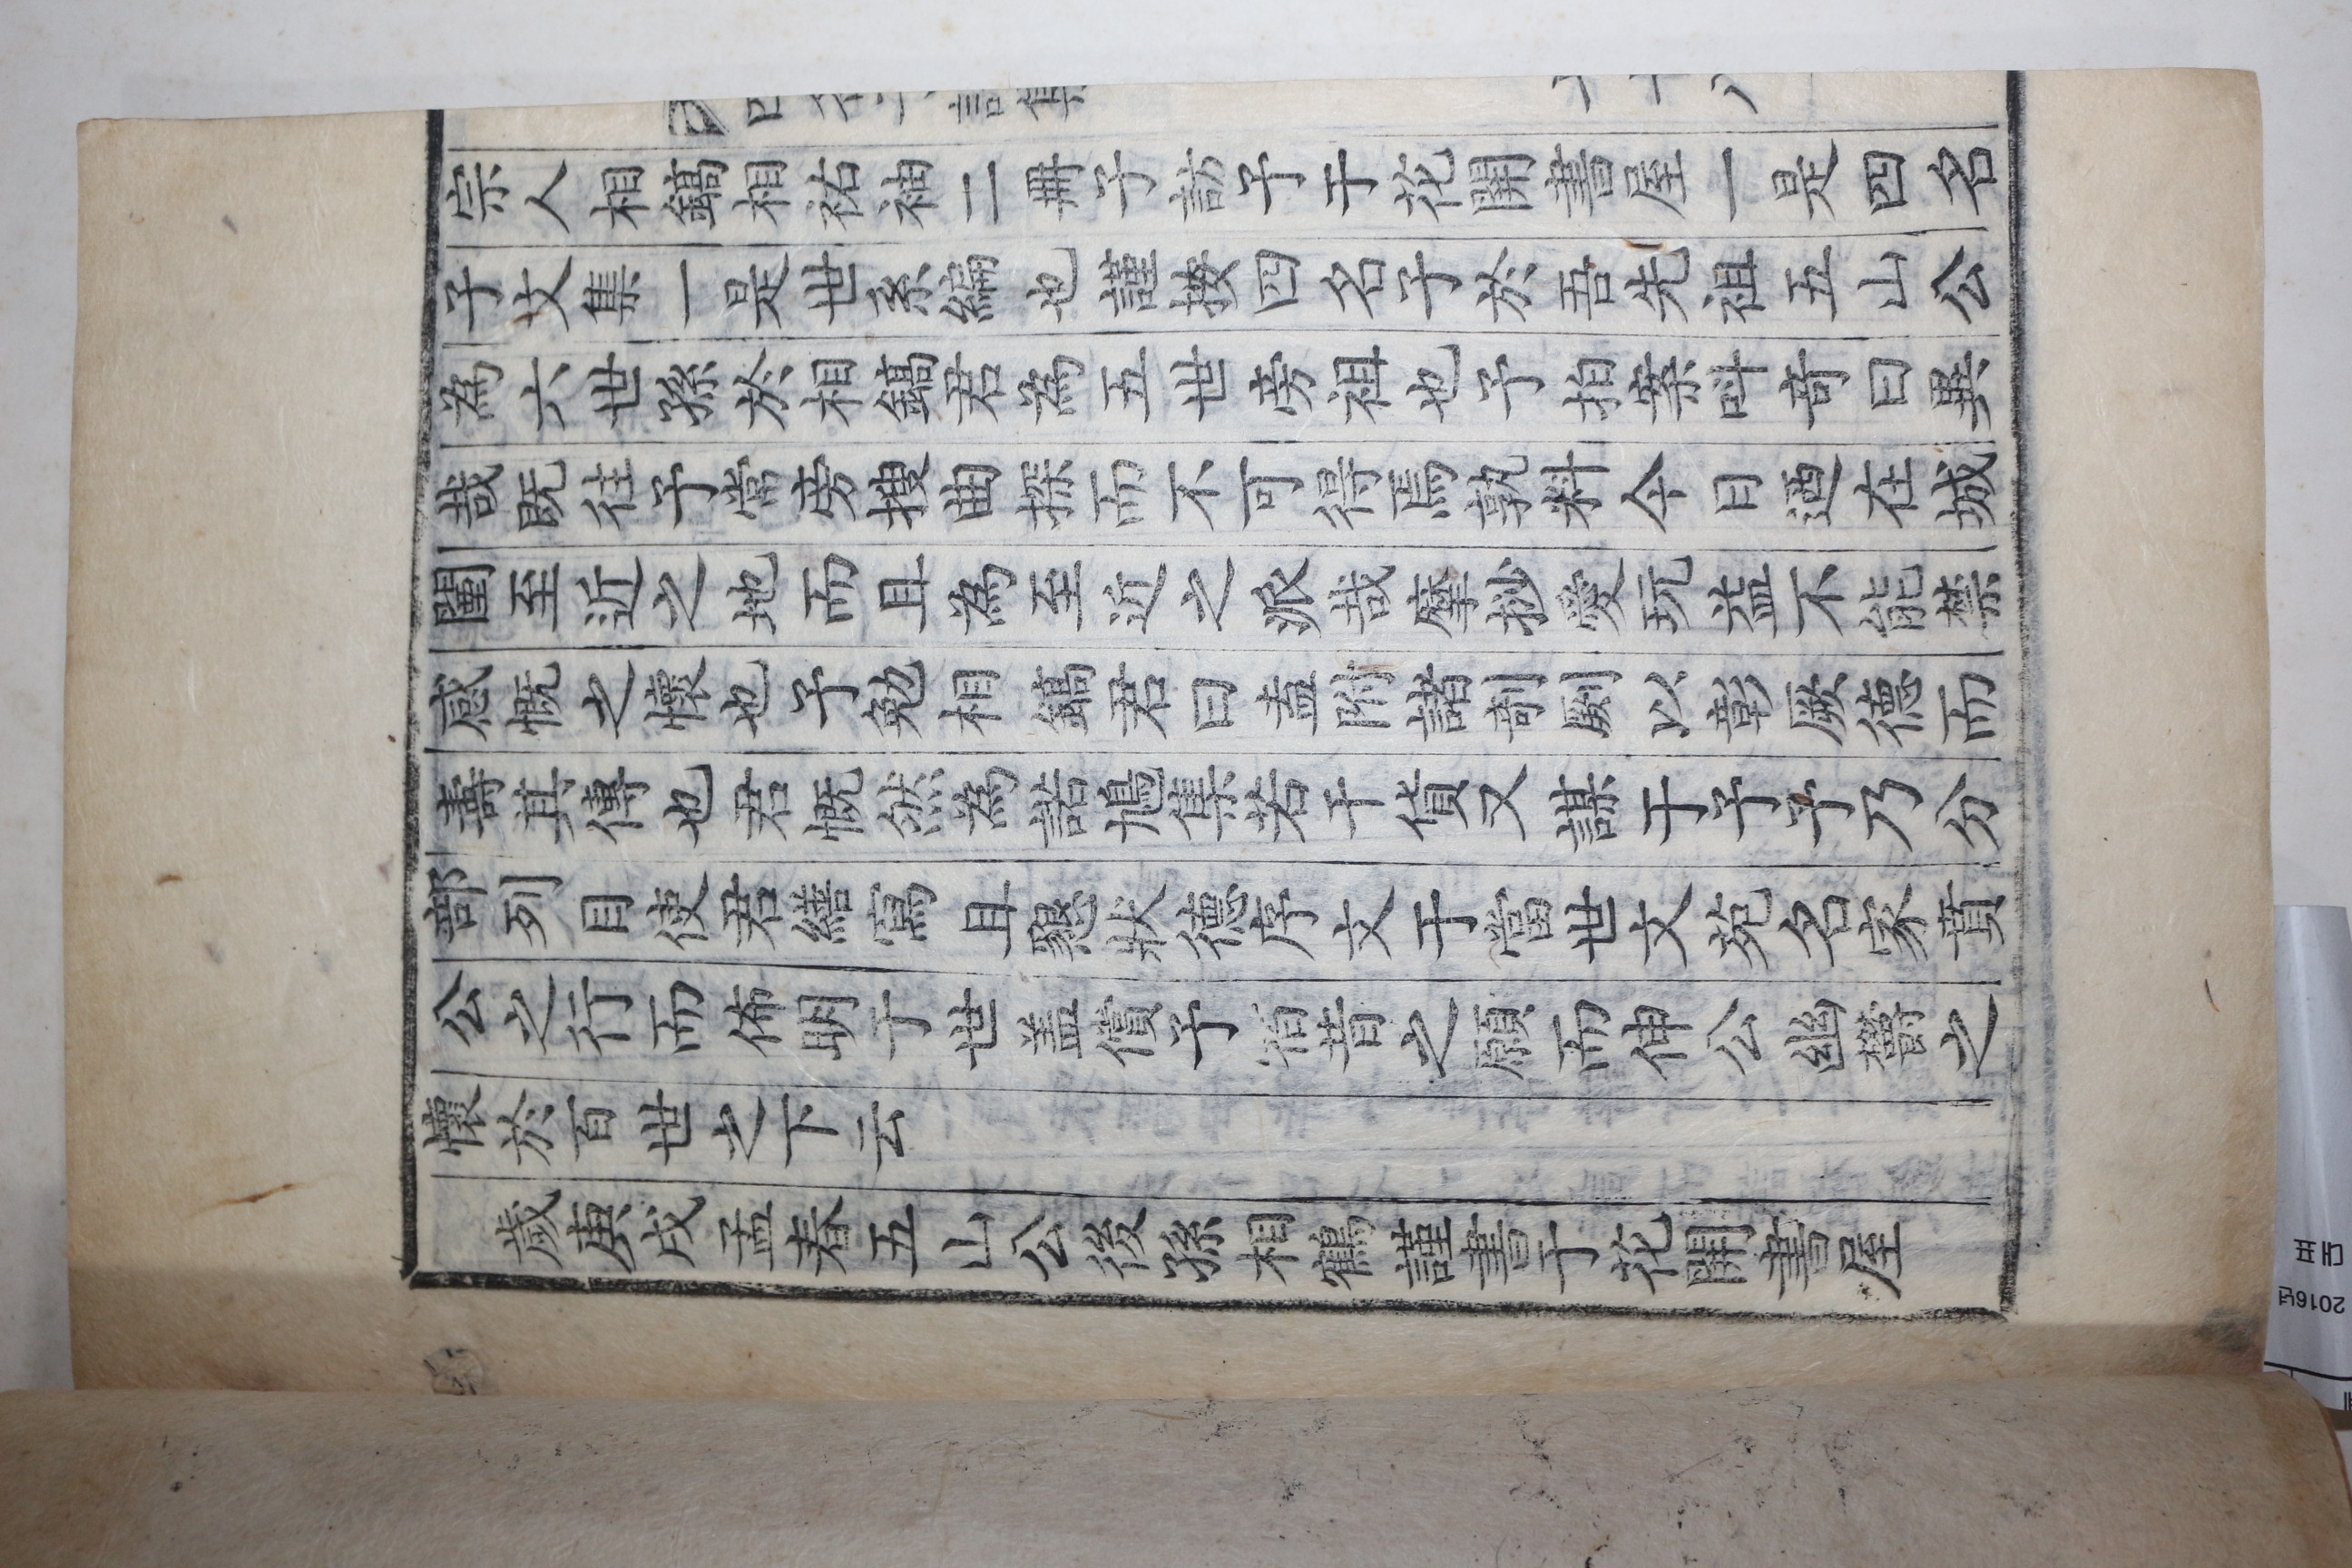 宗人相鎬相祐袖二冊子訪予于花開書屋一是四名
子文集一是世系編也謹按四名子於吾先祖五山公
為六世孫於相鎬君為五世旁祖也予拍案叫奇曰異
哉既往予常旁搜曲探而不可得焉孰料今日迺在城
闉至近之地而且為至近之派哉摩挱愛玩益不能禁
感慨之懷也予勉相鎬君曰盍附諸剞劂以彰厥德而
壽其傳也君慨然為諾鳩集若干貨又謀于予予乃分
部列目使君繕寫且懇狀德序文于當世文苑名家賁
公之行而佈明于世盖償予宿昔之願而伸公幽欝之
懷於百世之下云
歲庚戌孟春五山公後孫相鶴謹書于花開書屋
2016년
대표